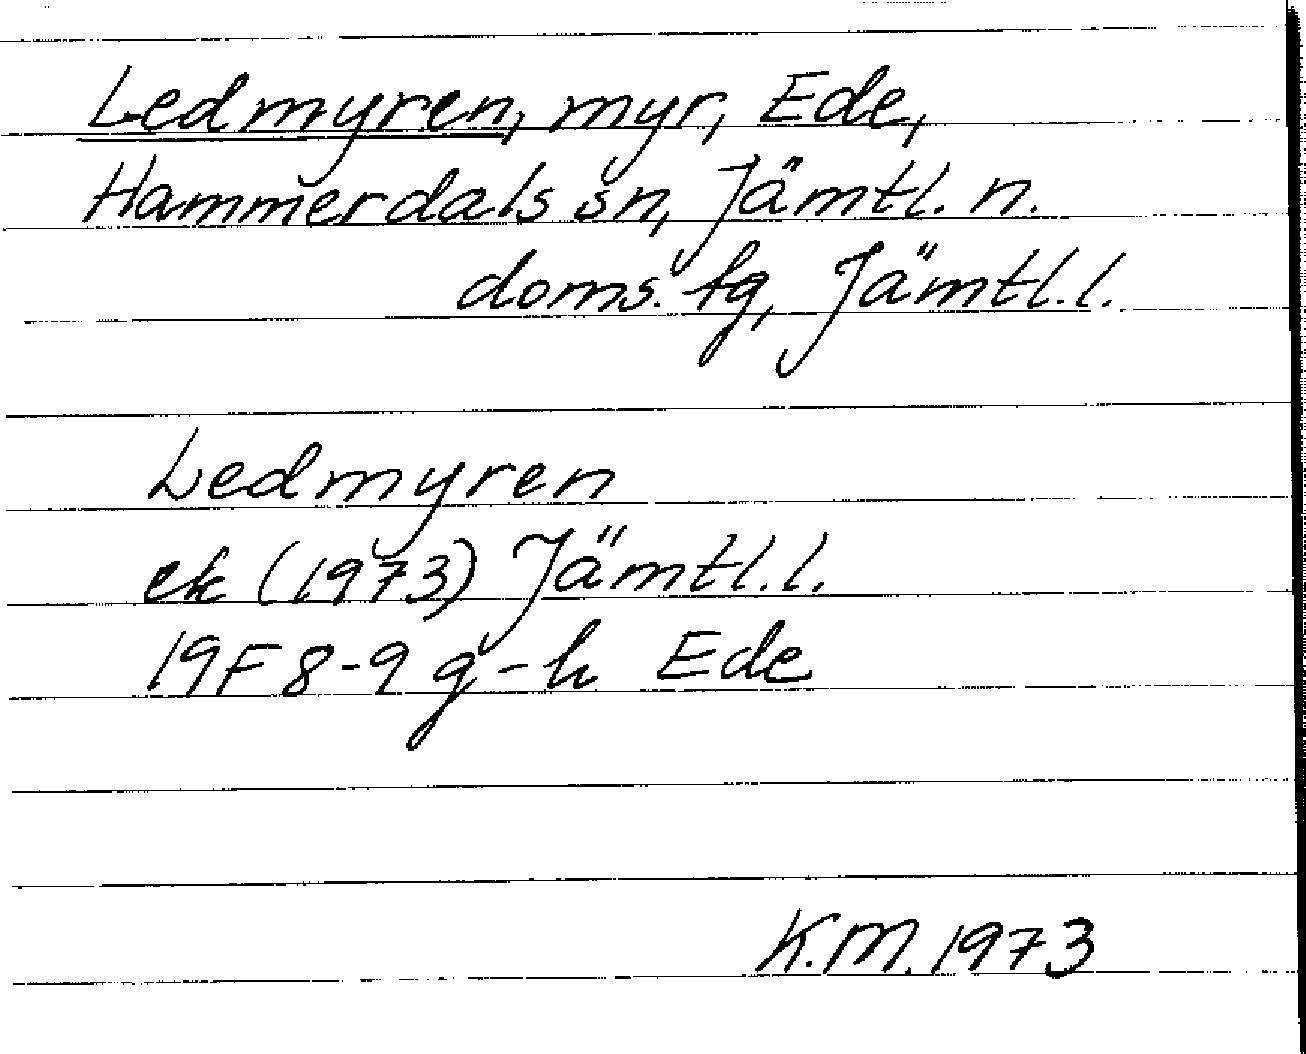 Ledmyren, myr, Ede,
Hammerdals sn, Jämtl. n.
doms. tg, Jämtl. l.
Ledmyren
ek (1973) Jämtl. l.
19F 8-9 g-h Ede
K.M. 1973